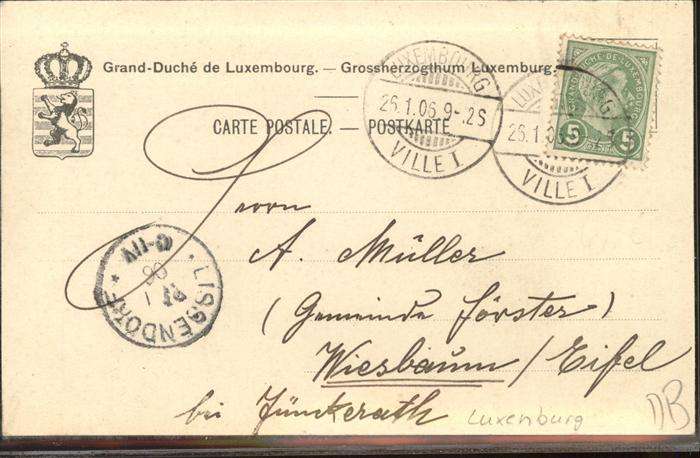 Grand-Duché de Luxembourg. — Grossherzogthum Luxemburg.
CARTE POSTALE. — POSTKARTE
LUXEMBOURG
26.1.06.9-.2S
VILLE I
LUXEMBOURG
VILLE I
5 5
LISSENDORF
Herrn
A. Müller
(Gemeinde förster)
Wiesbaum / Eifel
bei Jünkerath
Luxenburg
DB